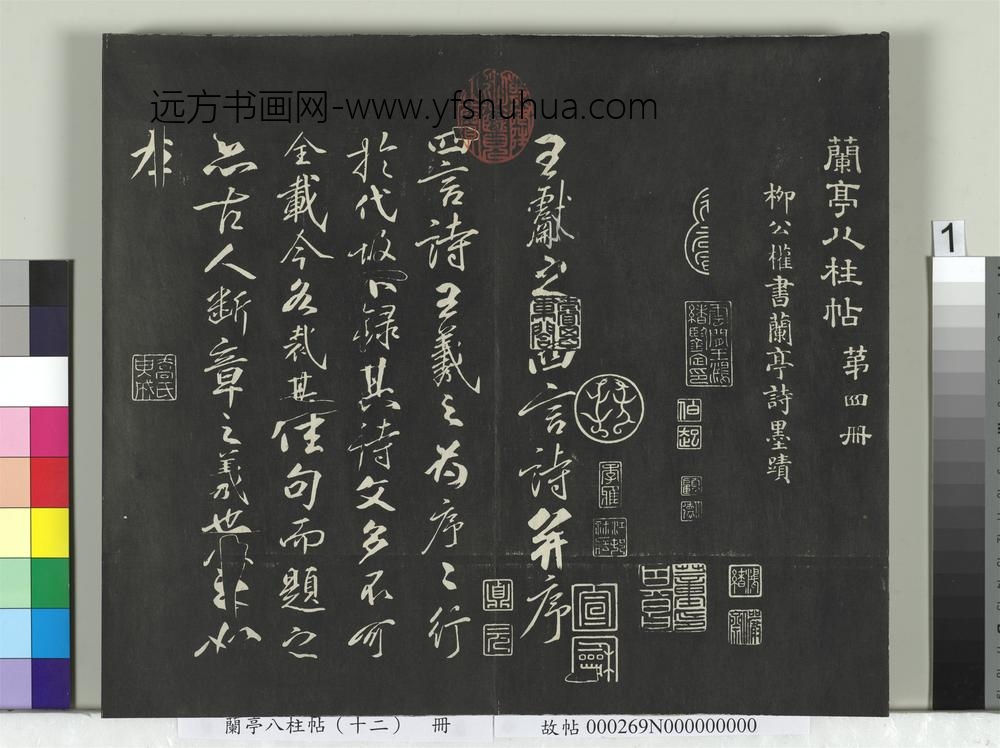 远方书画网-www.yfshuhua.com
蘭亭八柱帖 第四冊
柳公權書蘭亭詩墨蹟
王獻之四言詩并序
四言詩王羲之為序序行
於代故不錄其詩文多不可
全載今各裁其佳句而題之
亦古人斷章之義也
非
1
蘭亭八柱帖（十二） 冊
故帖 000269N000000000